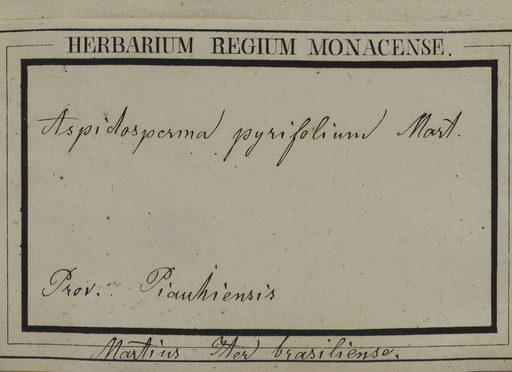 HERBARIUM REGIUM MONACENSE.
Aspidosperma pyrifolium Mart.
Prov. Piauhiensis
Martius Iter brasiliense.